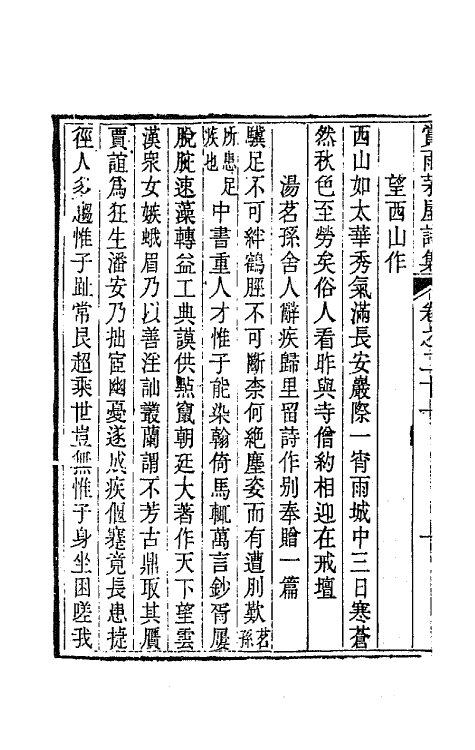 賞雨茅屋詩集
卷之二十
望西山作
西山如太華秀氣滿長安巖際一宵雨城中三日寒蒼
然秋色至勞矣俗人看昨與寺僧約相迎在戒壇
湯茗孫舍人辭疾歸里留詩作別奉贈一篇
驥足不可絆鶴脛不可斷柰何絶塵姿而有遭刖歎茗孫
所患足疾也中書重人才惟子能染翰倚馬輒萬言鈔胥屢
脫腕速藻轉益工典謨供點竄朝廷大著作天下望雲
漢衆女嫉蛾眉乃以善淫訕叢蘭謂不芳古鼎取其贋
賈誼爲狂生潘安乃拙宦幽憂遂成疾偃蹇竟長患捷
徑人多趨惟子趾常艮超乘世豈無惟子身坐困嗟我